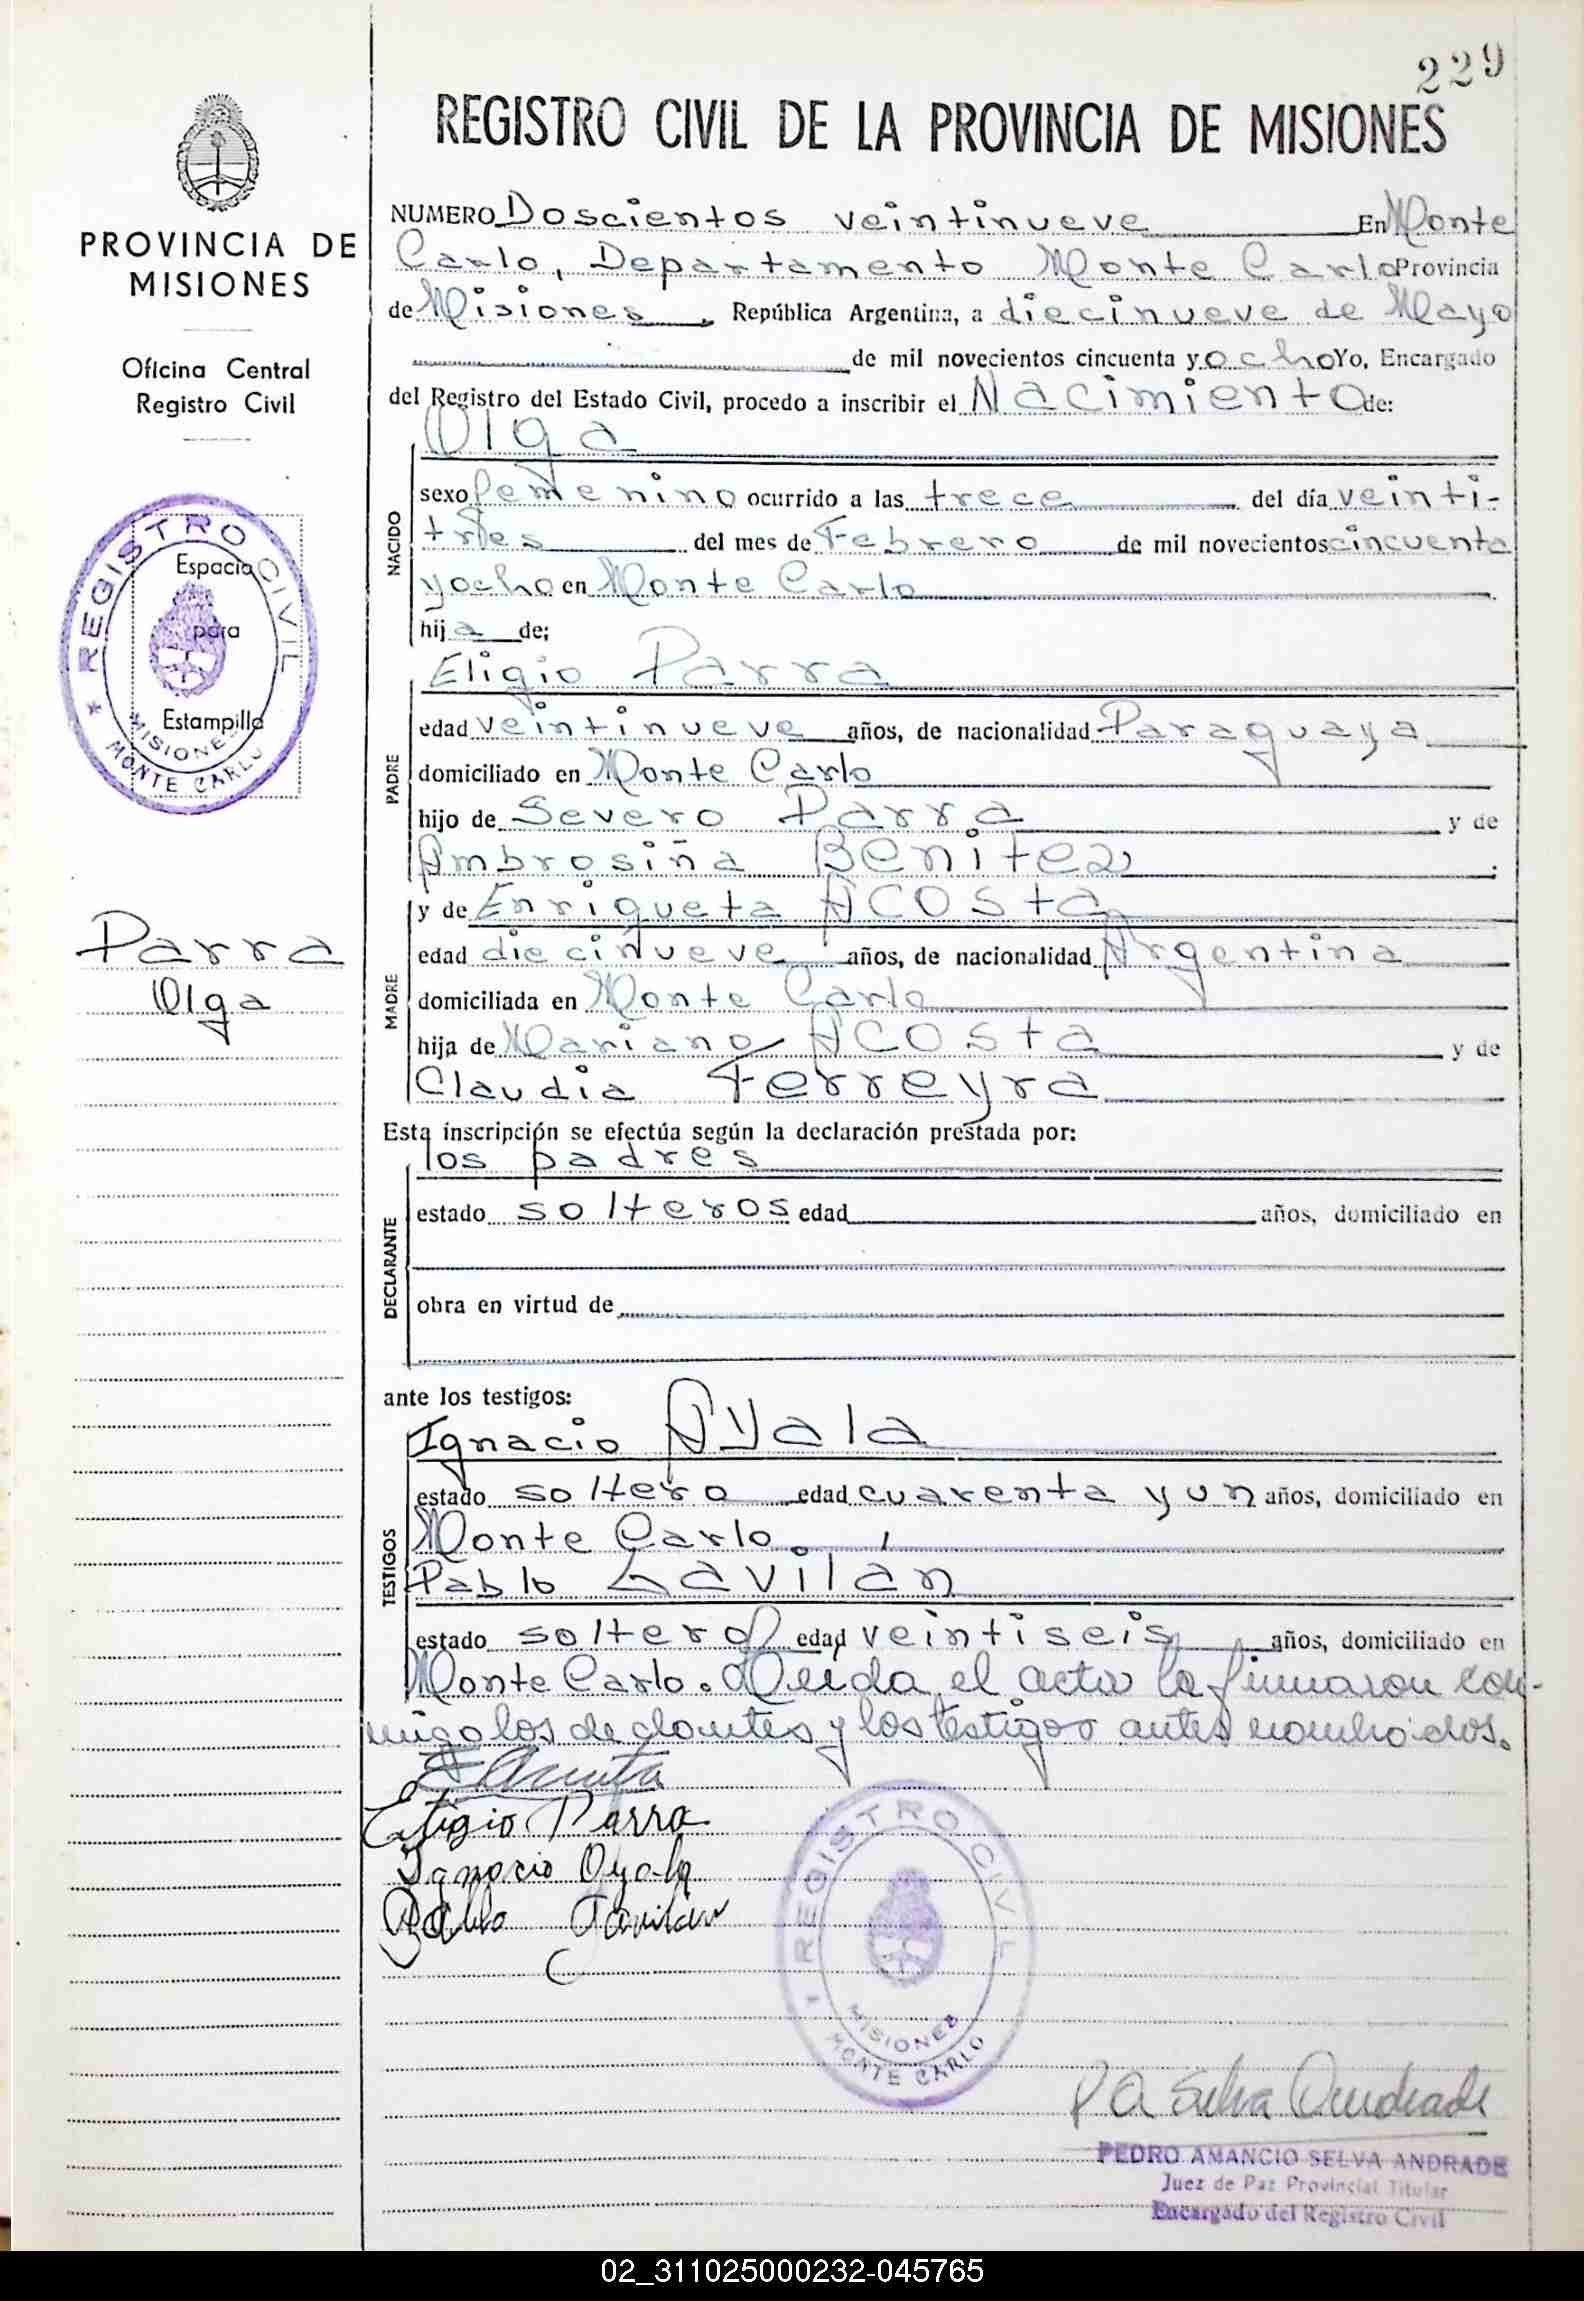 229
REGISTRO CIVIL DE LA PROVINCIA DE MISIONES
PROVINCIA DE
MISIONES
Oficina Central
Registro Civil
REGISTRO CIVIL
Espacio
para
Estampilla
MISIONES
MONTE CARLO
Parra
Olga
NUMERO Doscientos veintinueve En Monte
Carlo, Departamento Monte Carlo Provincia
de Misiones, República Argentina, a diecinueve de Mayo
de mil novecientos cincuenta y ocho Yo, Encargado
del Registro del Estado Civil, procedo a inscribir el Nacimiento de:
Olga
NACIDO
sexo femenino ocurrido a las trece del día veinti-
trés del mes de Febrero de mil novecientos cincuenta
y ocho en Monte Carlo
hija de;
Eligio Parra
PADRE
edad veintinueve años, de nacionalidad Paraguaya
domiciliado en Monte Carlo
hijo de Severo Parra y de
Ambrosiña Benitez
y de Enriqueta ACOSta
MADRE
edad diecinueve años, de nacionalidad Argentina
domiciliada en Monte Carlo
hija de Mariano ACOSta y de
Claudia Ferreyra
Esta inscripción se efectúa según la declaración prestada por:
los padres
DECLARANTE
estado solteros edad años, domiciliado en
obra en virtud de
ante los testigos:
Ignacio Ayala
TESTIGOS
estado soltero edad cuarenta y un años, domiciliado en
Monte Carlo
Pablo Gavilán
estado soltero edad veintiseis años, domiciliado en
Monte Carlo. Leída el acta la firmaron con-
migo los declarantes y los testigos antes nombrados.
E Acosta
Eligio Parra
Ignacio Ayala
Pablo Gavilan
REGISTRO CIVIL
MISIONES
MONTE CARLO
P A Selva Andrade
PEDRO AMANCIO SELVA ANDRADE
Juez de Paz Provincial Titular
Encargado del Registro Civil
02_311025000232-045765